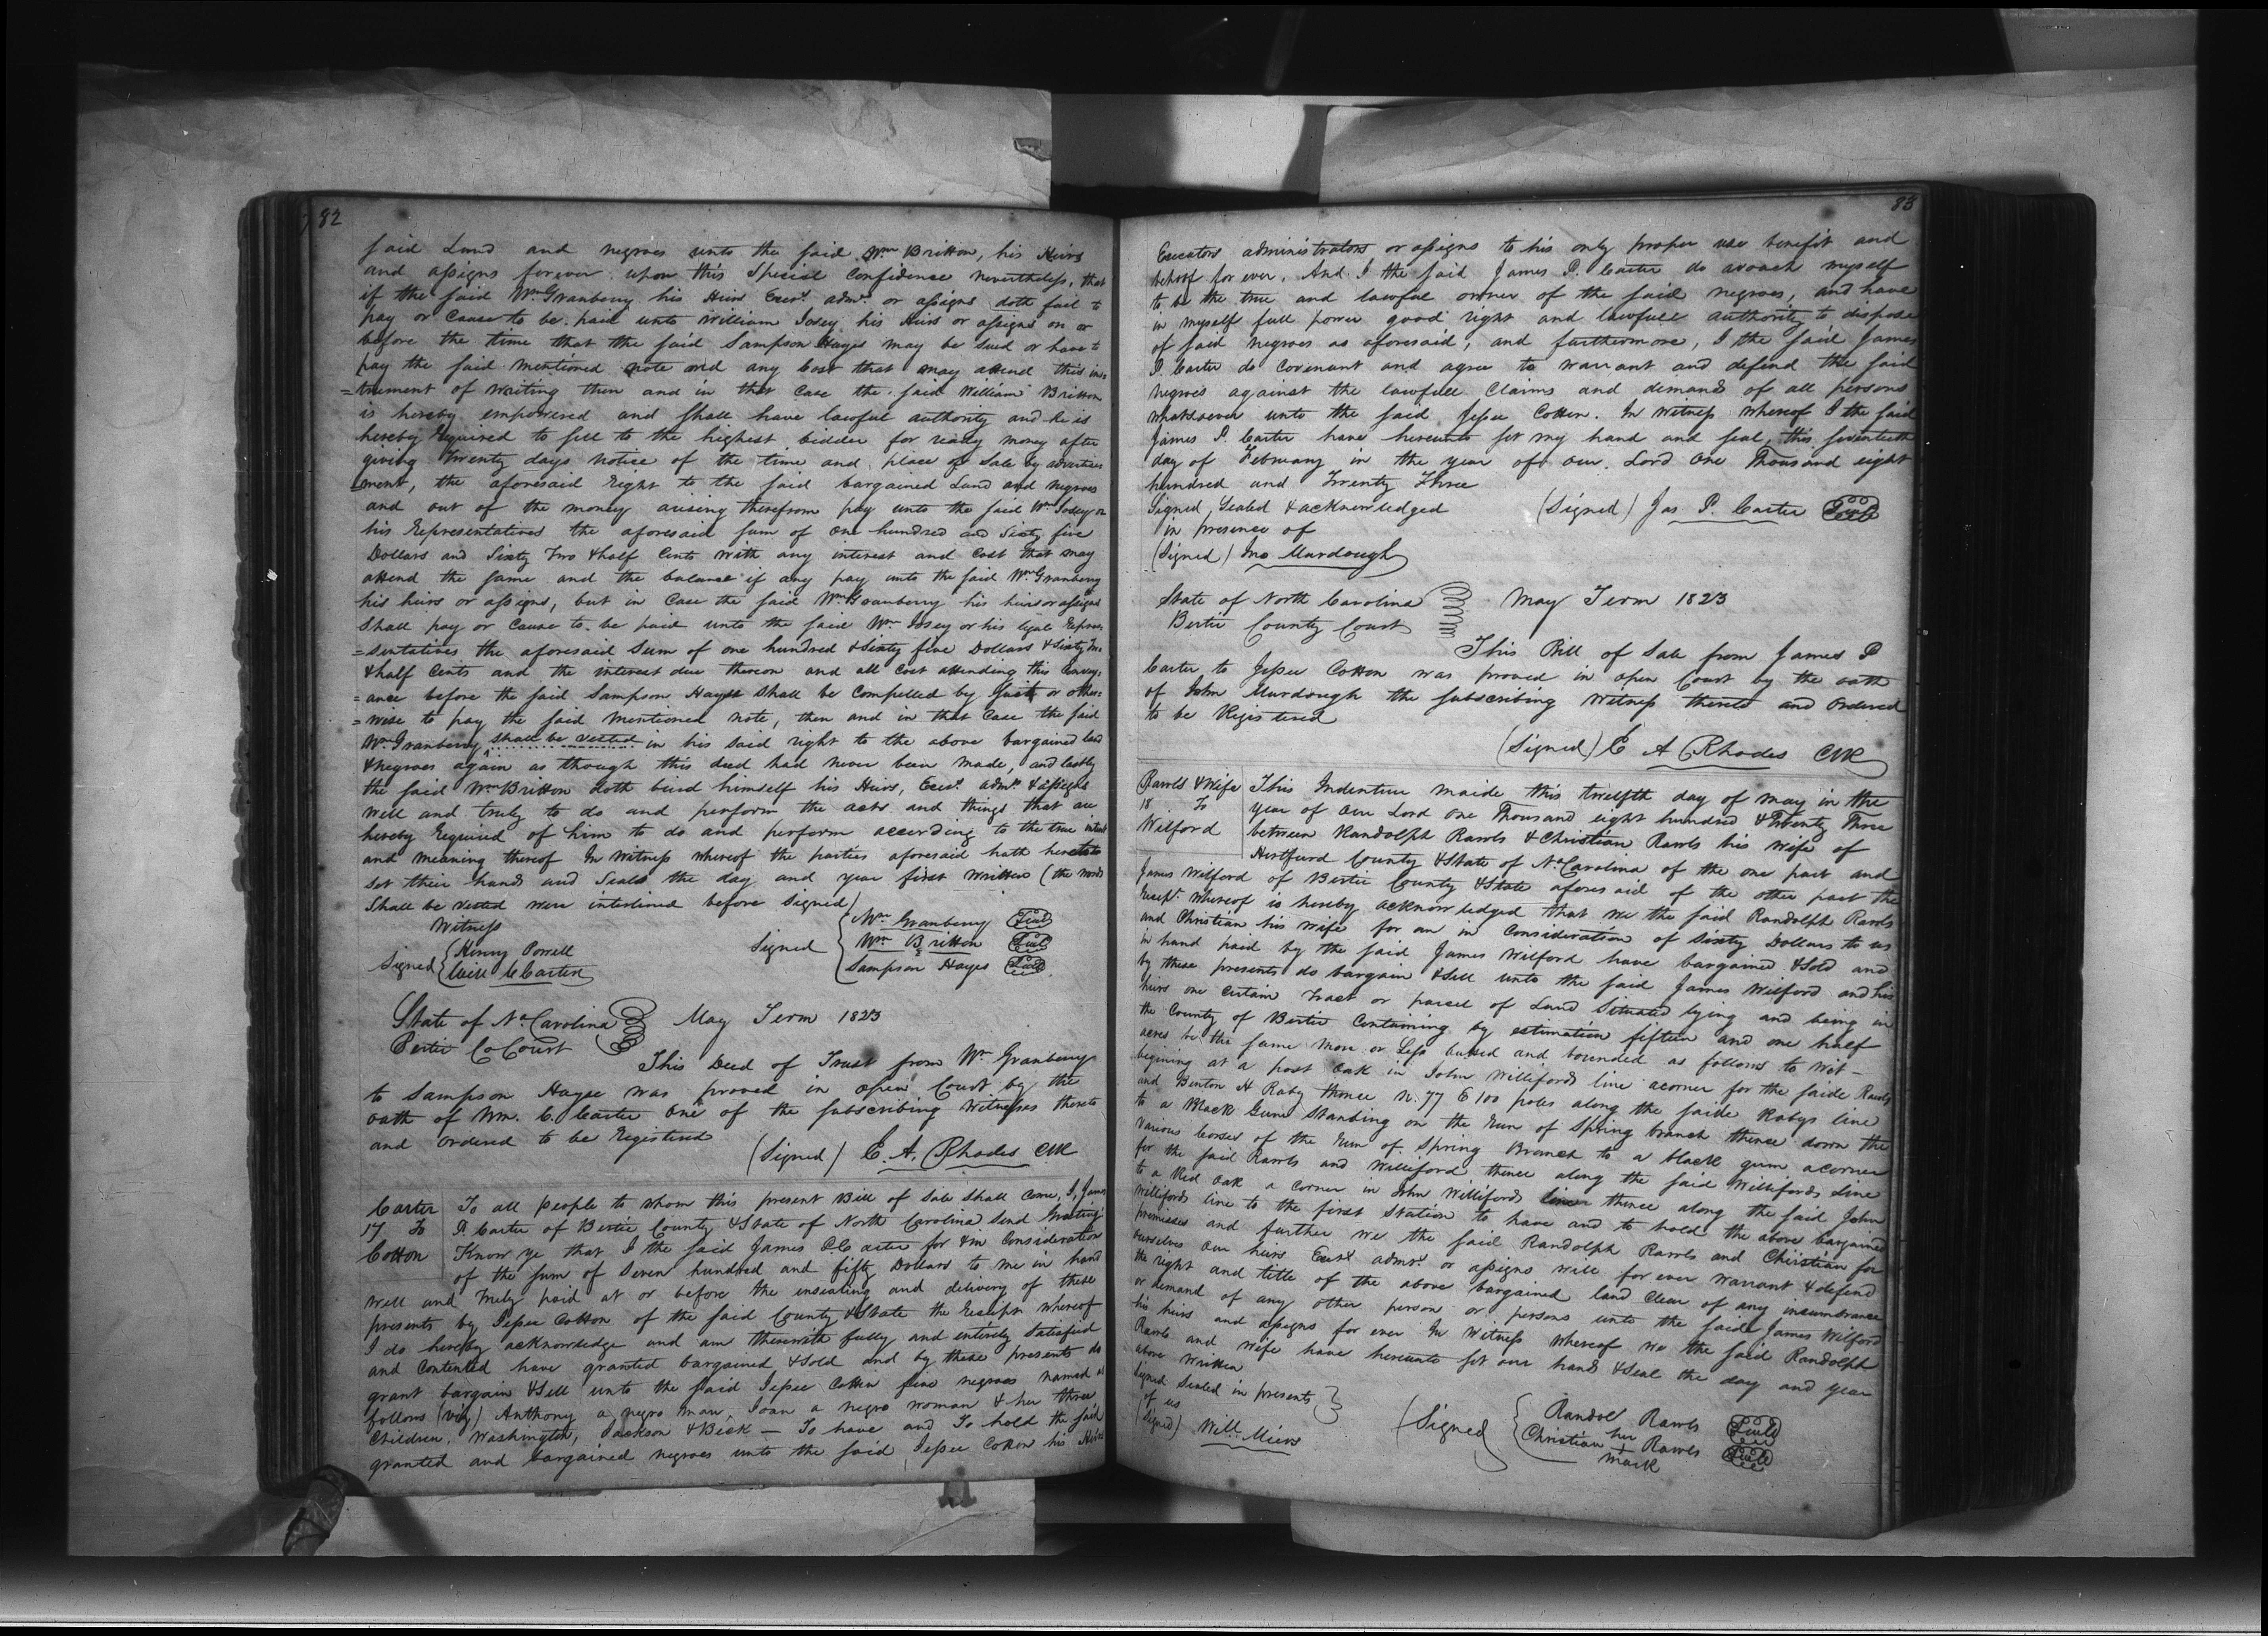 82
said Land and negroes unto the said Wm Britton, his Heirs
and assigns forever upon this Special Confidence nevertheless, that
if the said Wm Granberry his Heirs Exrs. admrs. or assigns doth fail to
pay or Cause to be paid unto William Josey his Heirs or assigns on or
before the time that the said Sampson Hayes may be sued or have to
pay the said mentioned note and any Cost that may attend this ins
=trument of writing then and in that Case the said William Britton
is hereby empowered and shall have lawful authority and he is
hereby required to sell to the highest bidder for ready money after
giving twenty days notice of the time and place of Sale by advertise
=ment, the aforesaid right to the said bargained Land and negroes
and out of the money arising therefrom pay unto the said Wm Josey or
his Representatives the aforesaid sum of one hundred and Sixty five
Dollars and Sixty Two & half Cents with any interest and Cost that may
attend the same and the balance if any pay unto the said Wm Granberry
his heirs or assigns, but in Case the said Wm Granberry his heirs or assigns
Shall pay or Cause to be paid unto the said Wm Josey or his legal Repre
=sentatives the aforesaid Sum of one hundred & Sixty five Dollars & Sixty Two
& half Cents and the interest due thereon and all Cost attending this Convey=
=ance before the said Sampson Hayes shall be Compelled by suit or other=
=wise to pay the said mentioned note, then and in that Case the said
Wm Granberry shall be vested in his said right to the above bargained land
& negroes again as though this deed had never been made, and lastly
the said Wm Britton doth bind himself his Heirs, Exrs. admrs. & assigns
well and truly to do and perform the acts and things that are
hereby required of him to do and perform according to the true intent
and meaning thereof In Witness whereof the parties aforesaid hath hereto
set their hands and Seals the day and year first written (the words
Shall be vested were interlined before signed)
Witness
Signed { Henry Powell
Will C Carter
Signed { Wm Granberry Seal
Wm Britton Seal
Sampson Hayes Seal
State of No Carolina
Bertie Co Court
May Term 1823
This Deed of Trust from Wm Granberry
to Sampson Hayse was proved in open Court by the
oath of Wm. C. Carter one of the subscribing Witnesses thereto
and ordered to be Registered
(Signed) E. A. Rhodes Clk
Carter
17 To
Cotton
To all people to whom this present Bill of Sale shall Come, I, James
P. Carter of Bertie County & State of North Carolina Send Greeting
Know ye that I the said James P Carter for & in Consideration
of the sum of Seven hundred and fifty Dollars to me in hand
well and truly paid at or before the ensealing and delivery of these
presents by Jesse Cotton of the said County & State the Receipt whereof
I do hereby acknowledge and am therewith fully and entirely Satisfied
and Contented have granted bargained & Sold and by these presents do
grant bargain & Sell unto the said Jesse Cotton five negroes named as
follows (viz) Anthony a negro man, Joan a negro woman & her three
Children, Washington, Jackson & Beck — To have and To hold the said
granted and bargained negroes unto the said Jesse Cotton his Heirs
83
Executors administrators or assigns to his only proper use benefit and
behoof for ever. And I the said James P. Carter do avouch myself
to be the true and lawful owner of the said negroes, and have
in myself full power good right and lawfull authority to dispose
of said negroes as aforesaid, and furthermore, I the said James
P. Carter do Covenant and agree to warrant and defend the said
negroes against the lawfull Claims and demands of all persons
whatsoever unto the said Jesse Cotton. In Witness whereof I the said
James P. Carter have hereunto set my hand and seal, this seventeeth
day of February in the year of our Lord one Thousand eight
hundred and Twenty Three
Signed, Sealed & acknowledged
in presence of
(Signed) Jno Murdough
(Signed) Jas P. Carter Seal
State of North Carolina
Bertie County Court
May Term 1823
This Bill of Sale from James P
Carter to Jesse Cotton was proved in open Court by the oath
of John Murdough the subscribing Witness thereto and ordered
to be Registered
(Signed) E A Rhodes Clk
Rawls & Wife
18 To
Wilford
This Indenture maide this twelfth day of may in the
year of our Lord one Thousand eight hundred & Twenty Three
between Randolph Rawls & Christian Rawls his Wife of
Hertford County & State of No Carolina of the one part and
James Wilford of Bertie County & State aforesaid of the other part the
Receipt whereof is hereby acknowledged that we the said Randolph Rawls
and Christian his wife for an in Consideration of Sixty Dollars to us
in hand paid by the said James Wilford have bargained & Sold and
by these presents do bargain & Sell unto the said James Wilford and his
heirs one certain Tract or parcel of Land Situated lying and being in
the County of Bertie Containing by estimation fifteen and one half
acres be the same more or Less butted and bounded as follows to Wit —
begining at a post oak in John Willifords line acorner for the saide Rawls
and Benton H Raby thence N. 77 E 100 poles along the saide Rabys line
to a Black Gum Standing on the Run of Spring branch thence down the
various Corses of the Run of Spring Branch to a black gum acorner
for the said Rawls and Williford thence along the said Willifords Line
to a Red oak a Corner in John Willifords line thence along the said John
Willifords line to the first Station to have and to hold the above bargained
premisses and further we the said Randolph Rawls and Christian for
ourselves our heirs Exrs admrs. or assigns will for ever Warrant & defend
the right and title of the above bargained land Clear of any incumbrance
or demand of any other person or persons unto the saide James Wilford
his heirs and assigns for ever In Witness whereof we the said Randolph
Rawls and wife have hereunto set our hands & Seal the day and year
above written
Signed Sealed in presents
of us
(Signed) Will. Miers
(Signed) { Randol Rawls Seal
Christian her Rawls Seal
+
mark